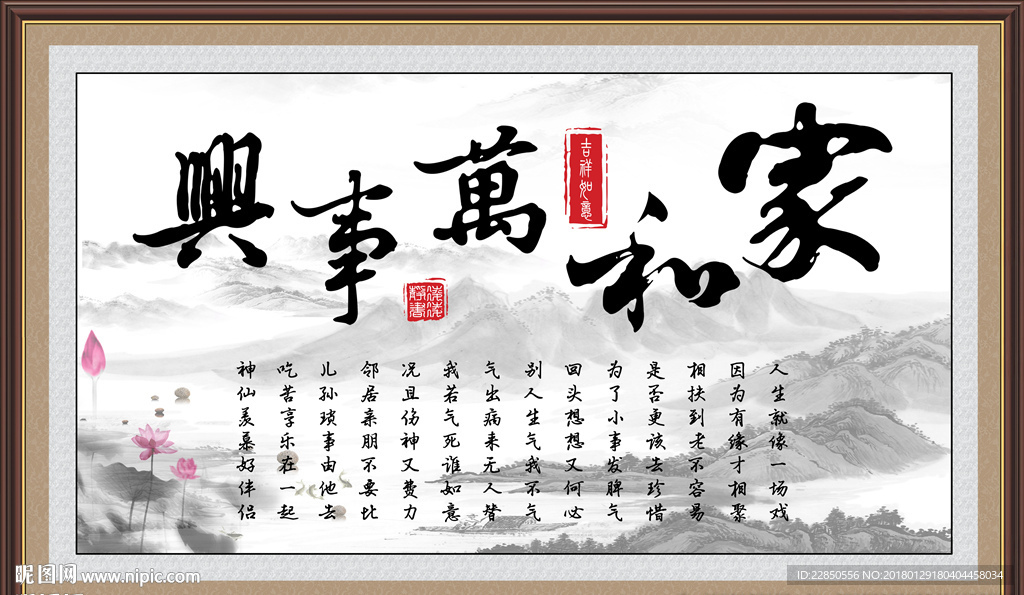 家和萬事興
吉祥如意
人生就像一场戏
因为有缘才相聚
相扶到老不容易
是否更该去珍惜
为了小事发脾气
回头想想又何必
别人生气我不气
气出病来无人替
我若气死谁如意
况且伤神又费力
邻居亲朋不要比
儿孙琐事由他去
吃苦享乐在一起
神仙羡慕好伴侣
昵图网 www.nipic.com
ID:22850556 NO:20180129180404458034